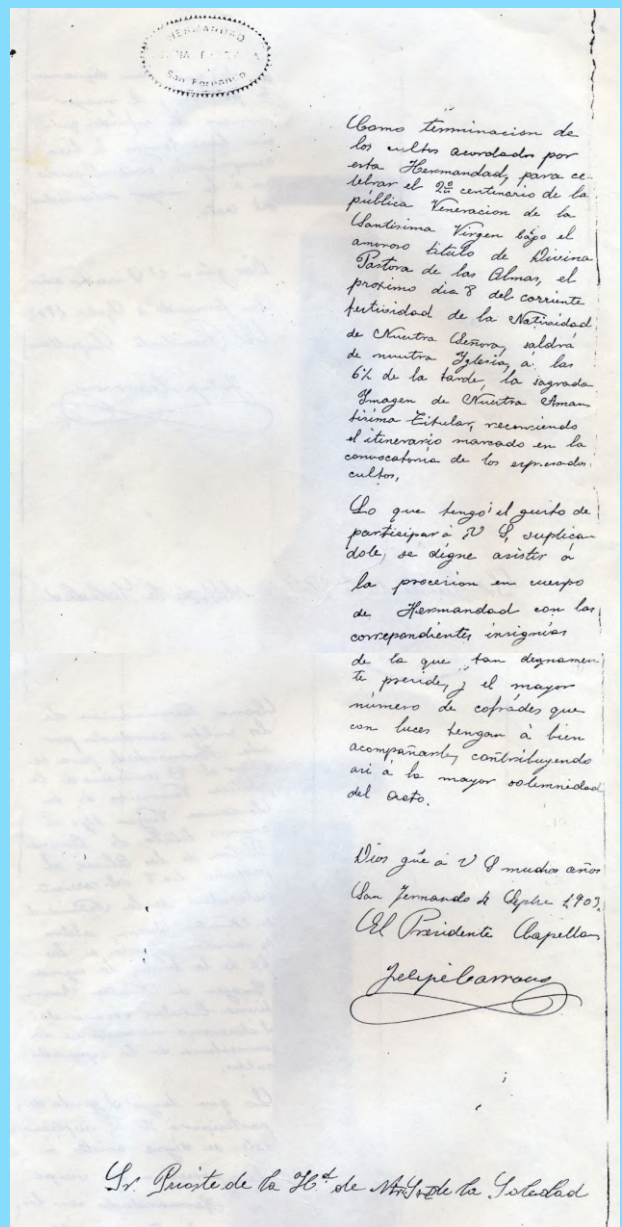 HERMANDAD
San Fernando
Como terminacion de
los cultos acordados por
esta Hermandad, para ce-
lebrar el 2º centenario de la
pública Veneracion de la
Santisima Virgen bajo el
amoroso titulo de Divina
Pastora de las Almas, el
proximo dia 8 del corriente
festividad de la Natividad
de Nuestra Señora, saldrá
de nuestra Yglesia, á las
6½ de la tarde, la sagrada
Imagen de Nuestra Aman
tisima Titular, recorriendo
el itinerario marcado en la
convocatoria de los expresados
cultos,
Lo que tengo el gusto de
participar á V S, suplican
dole, se digne asistir á
la procesion en cuerpo
de Hermandad con las
correpondientes insignias
de la que tan degnamen
te preside, y el mayor
número de cofrades que
con luces tengan á bien
acompañarle, contribuyendo
asi á la mayor solemnidad
del acto.
Dios gúe á V S muchos años
San Fernando 4 Sepbre 1903.
El Presidente Capellan
Felipe
Sr. Prioste de la Hd de Ntrª Srª de la Soledad